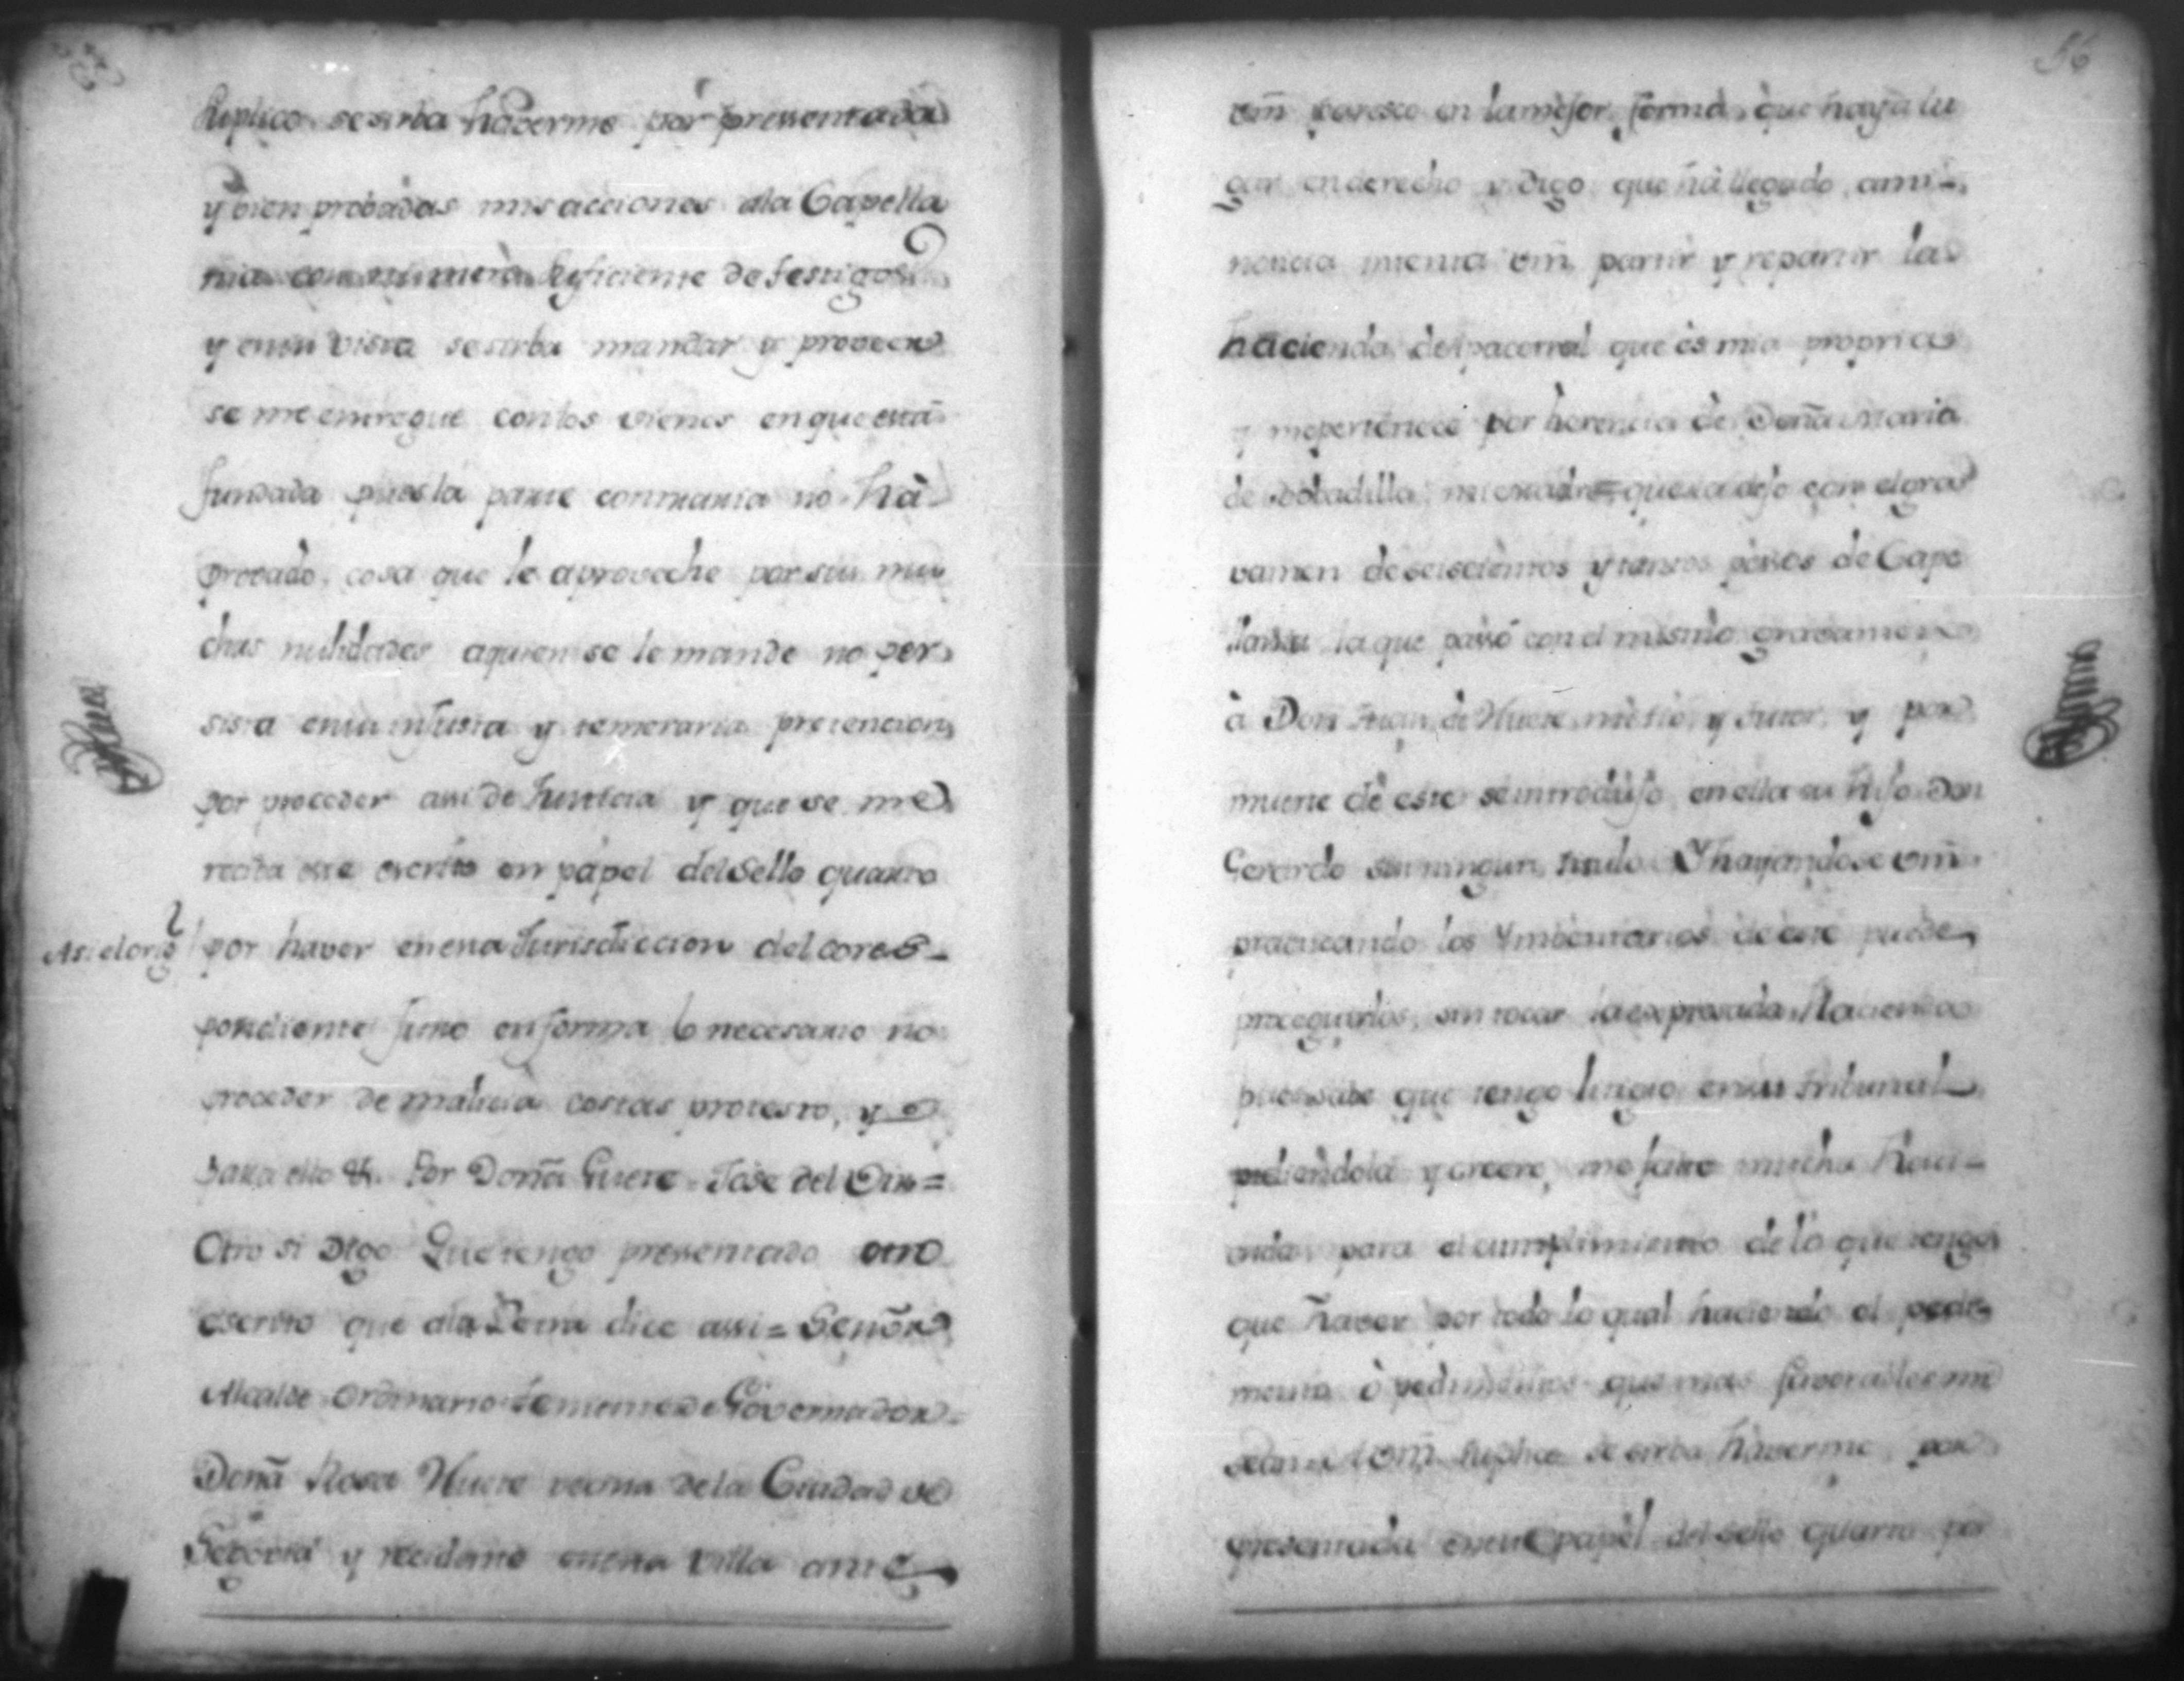 Suplico se sirba haverme por presentada
y bien probadas mis acciones ala Capella
nia con numero suficiente de testigos
y en su vista se sirba mandar y proveer
se me entregue con los vienes en que está
fundada pues la parte contraria no hà
provado cosa que le aproveche por sus mu
chas nulidades aquien se le mande no per
sista en su injusta y temeraria pretencion
por proceder assi de Justicia y que se me
reciva este escrito en papel del Sello quarto
Asi el orig.l
por haver en esta Jurisdiccion del corres-
pondiente juro en forma lo necesario no
proceder de malicia costas protesto, y
para ello &. Por Doña Huete Jose del
Otro si Digo Que tengo pressentado otro
escrito que ala Letra dice assi = Señor
Alcalde Ordinario Teniente de Governador =
Doña Rosa Huete vecina de la Ciudad de
Segovia y recidente en esta Villa ante
56
vm̃ paresco en la mejor forma que haya lu
gar en derecho y digo que hà llegado a mi
noticia intenta vm̃ partir y repartir la
hacienda del pacorral que ès mia propria
y me pertenece por herencia de Doña Maria
de Bobadilla mi madre que la dejo con el gra
vamen de seiscientos y tantos pessos de Cape
lania la que passó con el mismo gravamen
à Don Juan de Huete mi tio y tutor y por
muerte de este se introdujo en ella su hijo Don
Gerardo sin ningun titulo Y hayandose vm̃
practicando los Ymbentarios de este puede
proceguirlos sin tocar la expresada Hacienda
pues sabe que tengo litigio en su tribunal
pidiendola y creere, me falte mucha Haci-
enda para el cumplimiento de lo que tengo
que haver por todo lo qual haciendo el pedi
mento ò pedimentos que mas favorables me
sean A vm̃ Suplico se sirba haverme por
presentada en este papel del sello quarto por